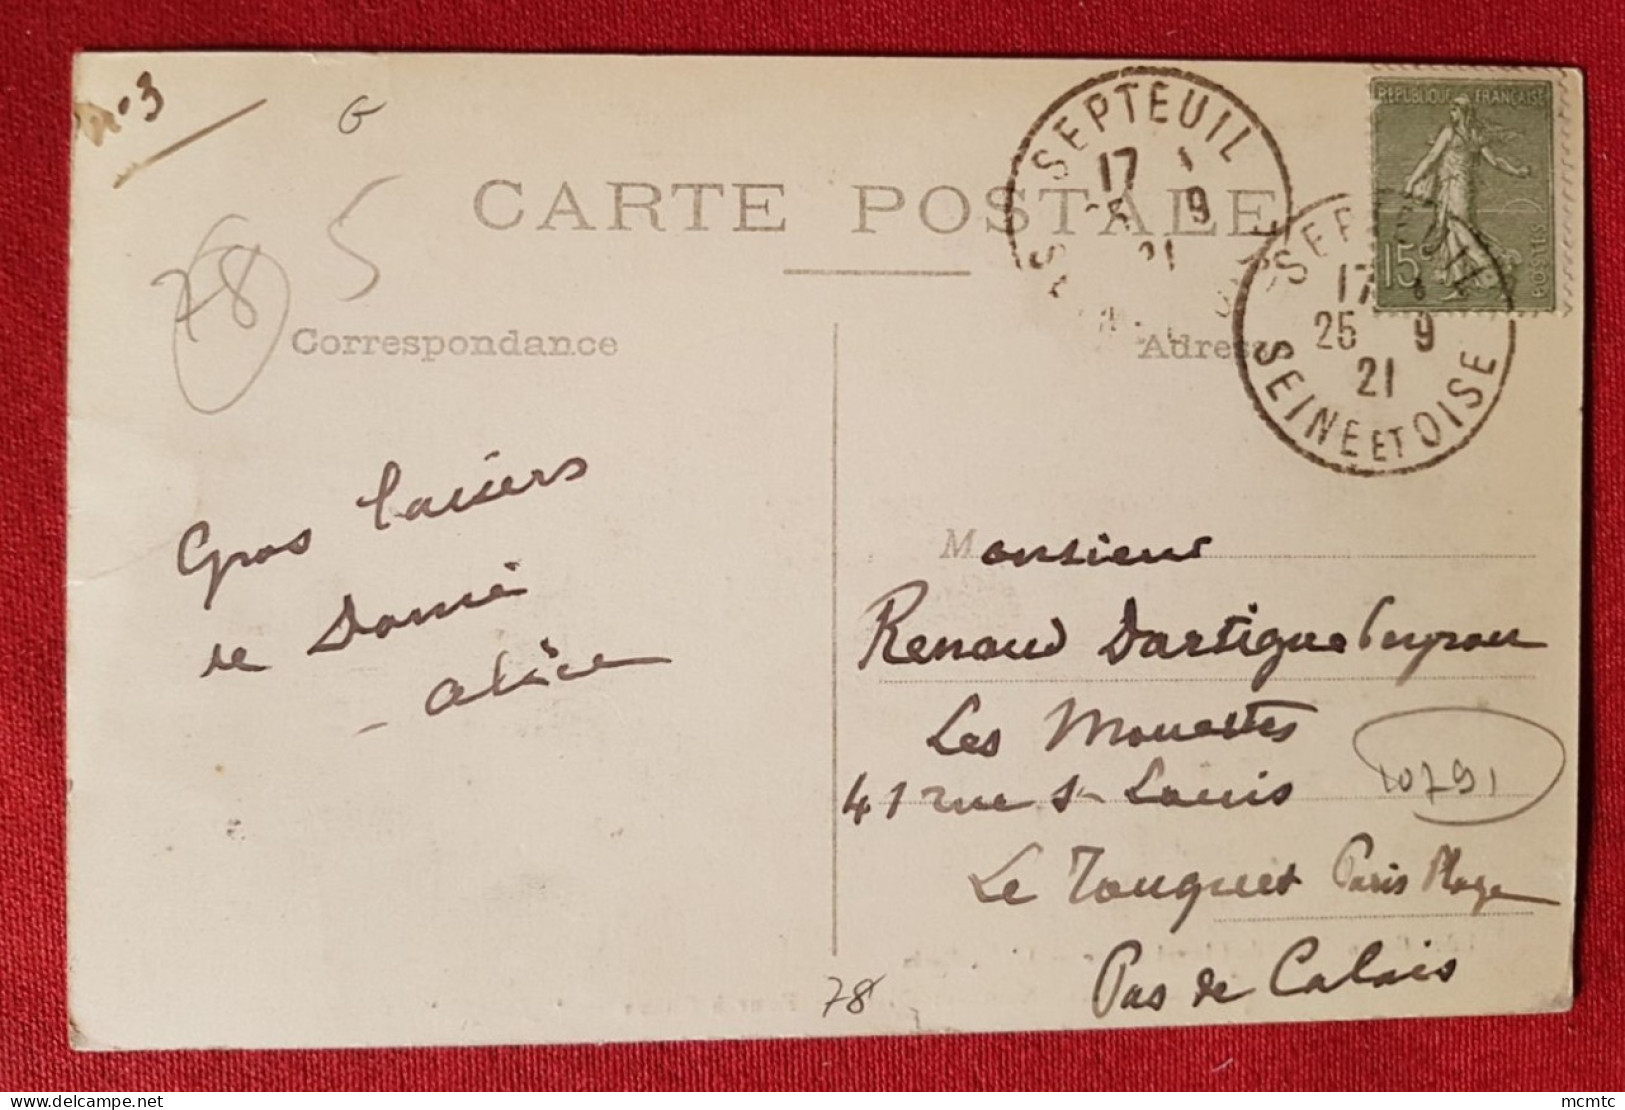 n°3
G
5
78
CARTE POSTALE
Correspondance
Adresse
SEPTEUIL
17
25 9
21
SEPTEUIL
17
25 9
21
SEINE ET OISE
REPUBLIQUE FRANÇAISE
15c
POSTES
Gros baisers
de
Alice
Monsieur
Renaud Dartigue Peyrou
Les Mouettes
41 rue St Louis
10791
Le Touquet Paris Plage
Pas de Calais
78
delcampe.net
mcmtc